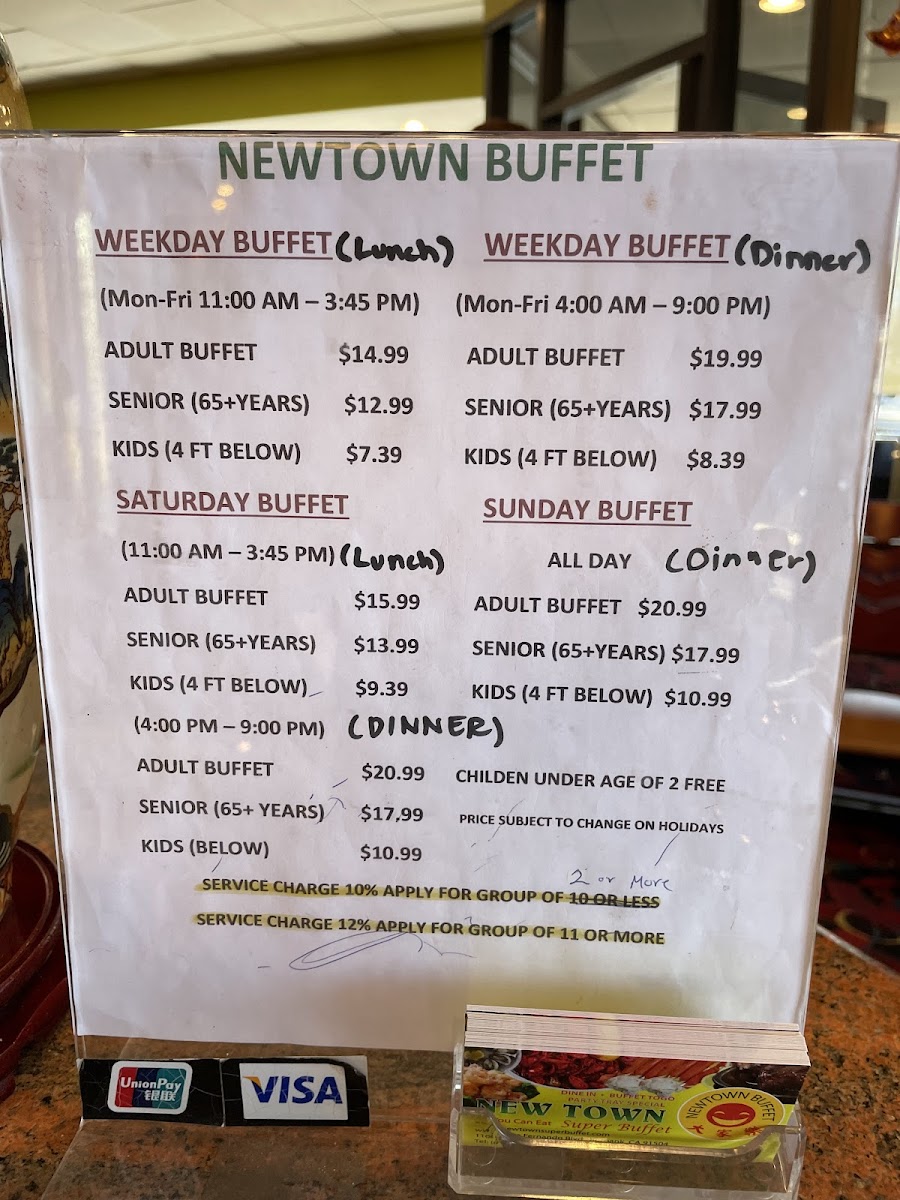 NEWTOWN BUFFET
WEEKDAY BUFFET (Lunch)
(Mon-Fri 11:00 AM – 3:45 PM)
ADULT BUFFET $14.99
SENIOR (65+YEARS) $12.99
KIDS (4 FT BELOW) $7.39
WEEKDAY BUFFET (Dinner)
(Mon-Fri 4:00 AM – 9:00 PM)
ADULT BUFFET $19.99
SENIOR (65+YEARS) $17.99
KIDS (4 FT BELOW) $8.39
SATURDAY BUFFET
(11:00 AM – 3:45 PM) (Lunch)
ADULT BUFFET $15.99
SENIOR (65+YEARS) $13.99
KIDS (4 FT BELOW) $9.39
(4:00 PM – 9:00 PM) (DINNER)
ADULT BUFFET $20.99
SENIOR (65+ YEARS) $17,99
KIDS (BELOW) $10.99
SUNDAY BUFFET
ALL DAY (Dinner)
ADULT BUFFET $20.99
SENIOR (65+YEARS) $17.99
KIDS (4 FT BELOW) $10.99
CHILDEN UNDER AGE OF 2 FREE
PRICE SUBJECT TO CHANGE ON HOLIDAYS
2 or More
SERVICE CHARGE 10% APPLY FOR GROUP OF 10 OR LESS
SERVICE CHARGE 12% APPLY FOR GROUP OF 11 OR MORE
UnionPay
银联
VISA
DINE IN • BUFFET TOGO
PARTY TRAY SPECIAL
NEW TOWN
You Can Eat Super Buffet
NEWTOWN BUFFET